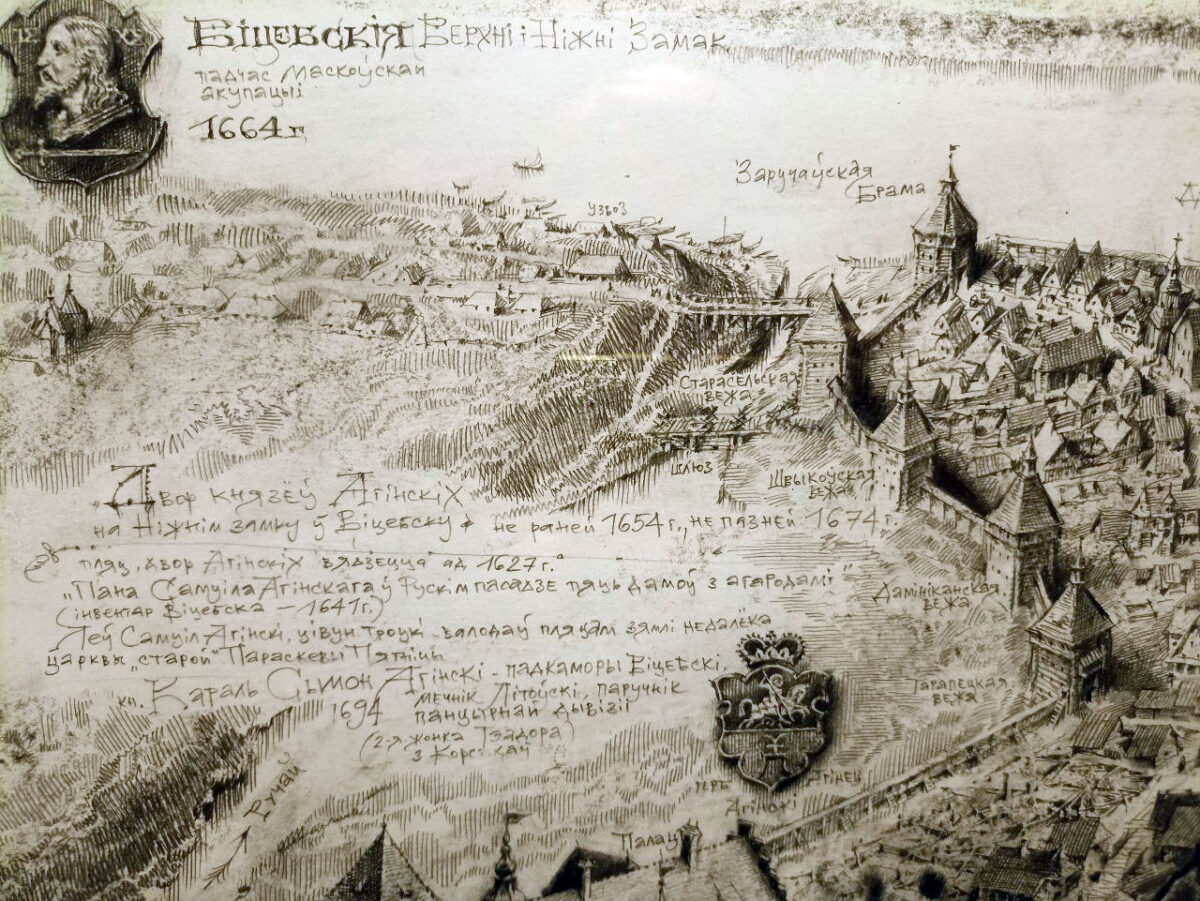 Віцебскія Верхні і Ніжні Замак
падчас Маскоўскай
акупацыі
1664 г
Заручаўская
Брама
узвоз
Старасельская
вежа
шлюз
Швыкоўская
вежа
"Двор князёў Агінскіх
на Ніжнім замку ў Віцебску" не раней 1654 г., не пазней 1674 г.
пляц, двор Агінскіх вядзецца ад 1627 г.
"Пана Самуіла Агінскага ў Рускім пасадзе пяць дамоў з агародамі"
(інвентар Віцебска – 1641 г.)
Леў Самуіл Агінскі, цівун Троцкі валодаў пляцам зямлі недалёка
царквы "старой" Параскевы Пятніцы
кн. Караль Сымон Агінскі - падкаморы Віцебскі,
1694 мечнік Літоўскі, паручнік
панцырнай дывізіі
(2-я жонка Тэадора
з Корсакаў
Дамініканская
вежа
Тарапецкая
вежа
Ручай
герб Агінец
Агінскі
Палац